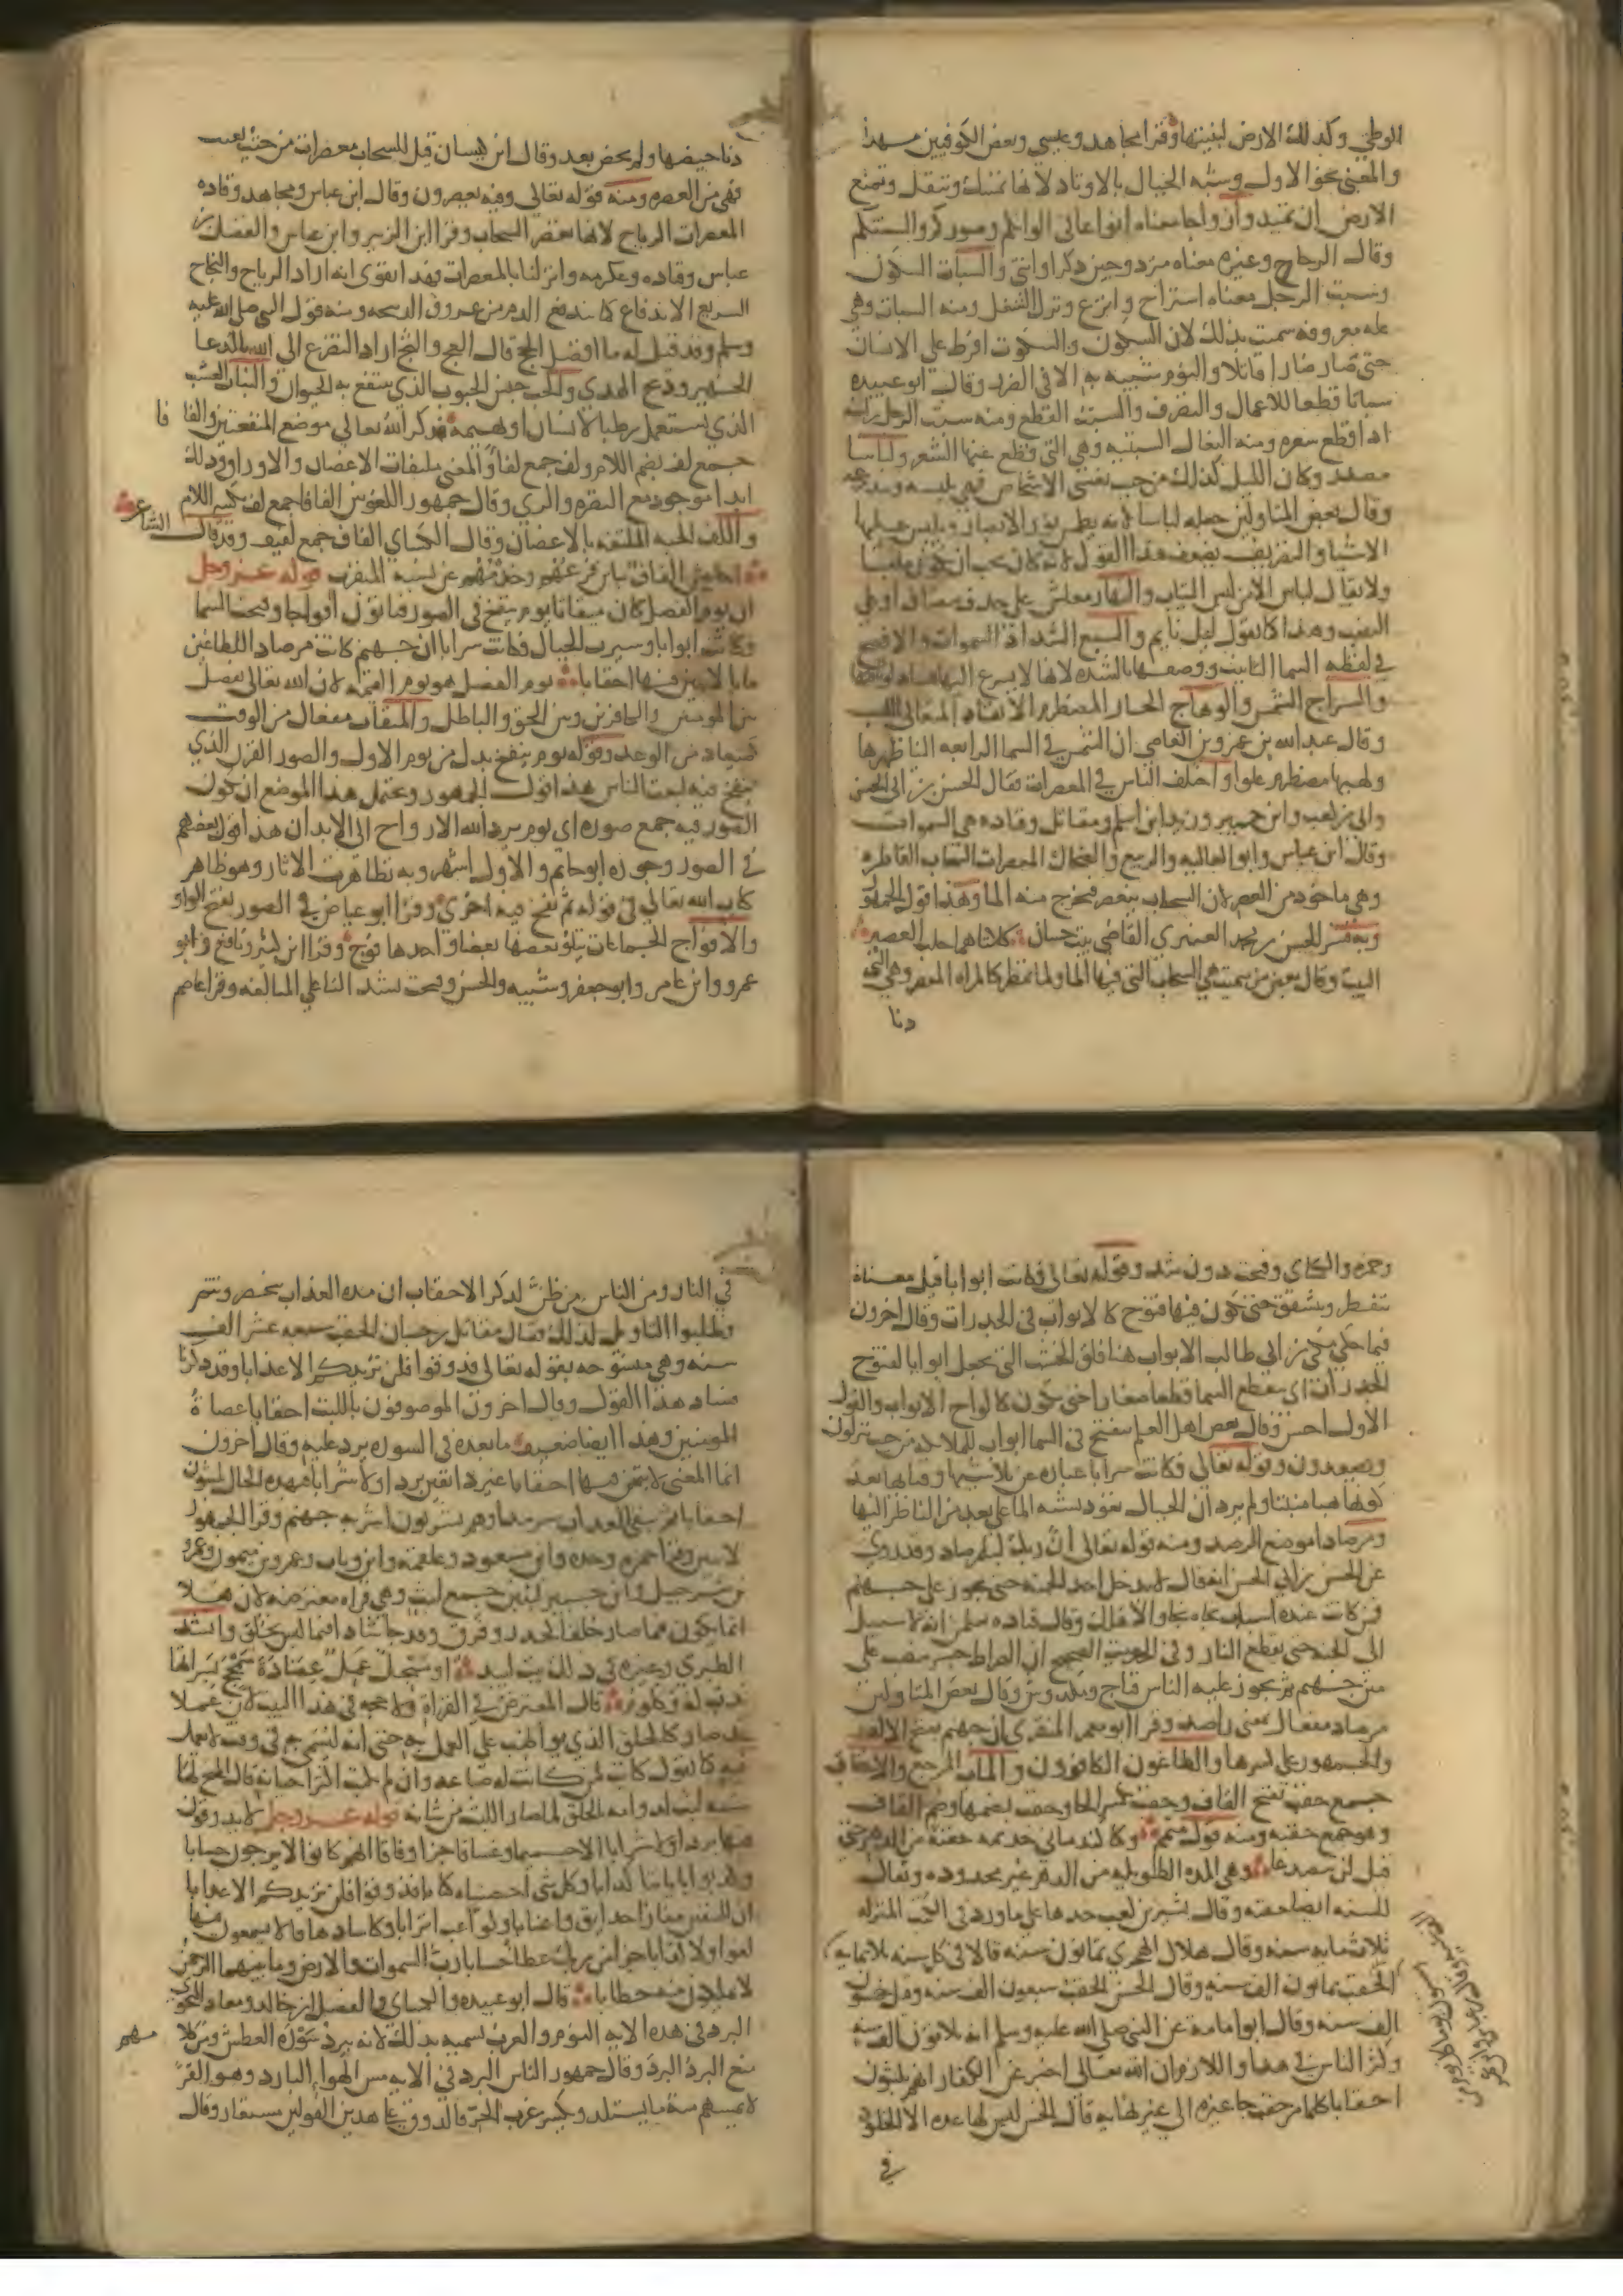 الوطي وكذلك الارض لبنيتها وقرا مجاهد وعيسى وبعض الكوفيين مهدا
والمعنى نحو الاول وشبه الجبال بالاوتاد لانها تمسك وتثقل وتمنع
الارض ان تميد وازواجا معناه انواعا في الوانكم وصوركم والسنتكم
وقال الزجاج وغيره معناه مزدوجين ذكرا وانثى والسبات السكون
وسبت الرجل معناه استراح واتزع وترك الشغل ومنه السبات وهي
علة معروفة سميت بذلك لان السكون والسكوت افرط على الانسان
حتى صار ضارا قاتلا والنوم شبيه به الا في الضرر وقال ابو عبيده
سباتا قطعا للاعمال والتصرف والسبت القطع ومنه سبت الرجل راسه
اذا قطع شعره ومنه النعال السبتيه وهي التي قطع عنها الشعر ولباسا
مصدر وكان الليل كذلك من حيث يغشى الاشخاص فهي تلبسه وتتدرعه
وقال بعض المتاولين جعله لباسا لانه يطمس نور الابصار ويلبس عليها
الاشيا والتصريف يضعف هذا القول لانه كان يجب ان يكون ملبسا
ولا يقال لباس الا من لبس الثياب والنهار معاشا على حذف مضاف او على
النسب وهذا كما تقول ليل نايم والسبع الشداد السموات والافصح
في لفظه السما التانيث ووصفها بالشده لانها لا يسرع اليها فساد لوثاقتها
والسراج الشمس والوهاج الحار المضطرم الاتقاد المتعالي اللهب
وقال عبد الله بن عمرو بن العاصي ان الشمس في السما الرابعه الينا ظهرها
ولهبها مضطرم علوا واختلف الناس في المعصرات فقال الحسن بن ابي الحسن
وابي بن كعب وابن جبير وزيد ابن اسلم ومقاتل وقتاده هي السموات
وقال ابن عباس وابو العاليه والربيع والضحاك المعصرات السحاب القاطره
وهي ماخوذ من العصر لان السحاب ينعصر فيخرج منه الما وهذا قول الجمهور
وبه فسر الحسن بن محمد العنبري القاضي بيت حسان كلتاهما حلب العصير
البيت وقال بعض من سميت هي السحاب التي فيها الما ولما تمطر كالمراه المعصر وهي التي
دنا
دنا حيضها ولم تحض بعد وقال ابن كيسان قيل للسحاب معصرات من حيث تغيث
فهي من العصره ومنه قوله تعالى وفيه يعصرون وقال ابن عباس ومجاهد وقتاده
المعصرات الرياح لانها تعصر السحاب وقرا ابن الزبير وابن عباس والفضل بن
عباس وقتاده وعكرمه وانزلنا بالمعصرات وهذا يقوي انه اراد الرياح والثجاج
السريع الاندفاع كما يندفع الدم من عروق الذبيحه ومنه قول النبي صلى الله عليه
وسلم وقد قيل له ما افضل الحج قال العج والثج اراد التضرع الى الله بالدعا
الجهير وذبح الهدي والحب جنس الحبوب الذي ينتفع به الحيوان والنبات العشب
الذي يستعمل رطبا لانسان او بهيمه فذكر الله تعالى موضع المنفعتين والفا فا
جمع لف بضم اللام ولف جمع لفا والمعنى ملتفات الاغصان والاوراق وذلك
ابدا موجود مع النضره والري وقال جمهور اللغويين الفافا جمع لف بكسر اللام
واللف الجنه الملتفه بالاغصان وقال الكساي الفاف جمع لفيف وقد قال الشاعر
قوله عز وجل
ان يوم الفصل كان ميقاتا يوم ينفخ في الصور فتاتون افواجا وفتحت السما
فكانت ابوابا وسيرت الجبال فكانت سرابا ان جهنم كانت مرصادا للطاغين
مابا لابثين فيها احقابا يوم الفصل هو يوم القيامه لان الله تعالى يفصل
بين المومنين والكافرين وبين الحق والباطل والميقات مفعال من الوقت
كميعاد من الوعد وقوله يوم ينفخ بدل من يوم الاول والصور القرن الذي
ينفخ فيه لبعث الناس هذا قول الجمهور ويحتمل هذا الموضع ان يكون
الصور فيه جمع صوره اي يوم يرد الله الارواح الى الابدان هذا قول بعضهم
في الصور وجوزه ابو حاتم والاول اشهر وبه تظاهرت الاثار وهو ظاهر
كتاب الله تعالى في قوله ثم نفخ فيه اخرى وقرا ابو عياض في الصور بفتح الواو
والافواج الجماعات يتلو بعضها بعضا واحدها فوج وقرا ابن كثير ونافع وابو
عمرو وابن عامر وابو جعفر وشيبه والحسن وفتحت بشد التا على المبالغه وقرا عاصم
وحمزه والكساي وفتحت دون شد وقوله تعالى فكانت ابوابا قيل معناه
تتفطر وتتشقق حتى يكون فيها فتوح كالابواب في الجدرات وقال اخرون
فيما حكى مكي بن ابي طالب الابواب هنا فلق الخشب التي تجعل ابوابا لفتوح
الجدران اي تتقطع السما قطعا صغارا حتى تكون كالواح الابواب والقول
الاول احسن وقال بعض اهل العلم تنفتح في السما ابواب للملايكه من حيث ينزلون
ويصعدون وقوله تعالى فكانت سرابا عباره عن تلاشيها وفنايها بعد
كونها هبا منبثا ولم يرد ان الجبال تعود تشبه الما على بعد من الناظر اليها
ومرصادا موضع الرصد ومنه قوله تعالى ان ربك لبالمرصاد وقد روي
عن الحسن بن ابي الحسن انه قال لا يدخل احد الجنه حتى يجوز على جهنم
فمن كانت عنده اسباب نجاه نجا والا هلك وقال قتاده تعلمن انه لا سبيل
الى الجنه حتى يقطع النار وفي الحديث الصحيح ان الصراط جسر ينصب على
متن جهنم ثم يجوز عليه الناس فناج ومكدوس وقال بعض المتاولين
مرصاد مفعال بمعنى راصد وقرا ابو معمر المنقري ان جهنم بفتح الالف
والجمهور على كسرها والطاغون الكافرون والماب المرجع والاحقاب
جمع حقب بفتح القاف وحقب بكسر الحا وحقب بضمها وضم القاف
وهو جمع حقبه ومنه قول متمم وكنا كندماني جذيمه حقبه من الدهر حتى
قيل لن يتصدعا وهي المده الطويله من الدهر غير محدوده ويقال
للسنه ايضا حقبه وقال بشر بن كعب حدها على ما ورد في الكتب المنزله
ثلاث مايه سنه وقال هلال الهجري ثمانون سنه قالا في كل سنه ثلاثمايه
الحقب ثمانون الف سنه وقال الحسن الحقب سبعون الف سنه وقيل خمسون
الف سنه وقال ابو امامه عن النبي صلى الله عليه وسلم انه ثلاثون الف سنه
وكثر الناس في هذا واللازم ان الله تعالى اخبر عن الكفار انهم يلبثون
احقابا كلما مر حقب جا غيره الى غير نهايه قال الحسن ليس لها عده الا الخلود
في
في النار ومن الناس من ظن لذكر الاحقاب ان مده العذاب تنحصر وتتم
وطلبوا التاويل لذلك فقال مقاتل بن حيان الحقب سبعه عشر الف
سنه وهي منسوخه بقوله تعالى فذوقوا فلن نزيدكم الا عذابا وقد ذكرنا
فساد هذا القول وقال اخرون الموصوفون باللبث احقابا عصاة
المومنين وهذا ايضا ضعيف ما بعده في السوره يرد عليه وقال اخرون
انما المعنى لابثين فيها احقابا غير ذايقين بردا ولا شرابا فهذه الحال يلبثون
احقابا ثم يبقى العذاب سرمدا وهم يشربون اشربه جهنم وقرا الجمهور
لابثين وقرا حمزه وحده وابن مسعود وعلقمه وابن وثاب وعمرو بن ميمون وعمرو
بن شرحبيل وابن جبير لبثين جمع لبث وهي قراه معترضه لان فعلا
انما يكون فيما صار خلقا كحذر وفرق وقد جا شاذا فيما ليس بخلق وانشد
الطبري وغيره في ذلك بيت لبيد او مسحل عمل عضادة سمحج بسراتها
ندب له وكلوم قال المعترض في القراة ولا حجه في هذا البيت لان عملا
قد صار كالخلق الذي يواظب على العمل به حتى انه ليسمى به في وقت لا يعمل
فيه كما تقول كاتب لمن كانت له صناعه وان لم يكتب اكثر احيانه قال المحتج لها
شبه لبث لدوامه بالخلق لما صار اللبث من شانه قوله عز وجل لا يذوقون
فيها بردا ولا شرابا الا حميما وغساقا جزا وفاقا انهم كانوا لا يرجون حسابا
وكذبوا باياتنا كذابا وكل شي احصيناه كتابا فذوقوا فلن نزيدكم الا عذابا
ان للمتقين مفازا حدايق واعنابا وكواعب اترابا وكاسا دهاقا لا يسمعون فيها
لغوا ولا كذابا جزا من ربك عطا حسابا رب السموات والارض وما بينهما الرحمن
لا يملكون منه خطابا قال ابو عبيده والكساي والفضل بن خالد ومعاذ النحوي
البرد في هذه الايه النوم والعرب تسميه بذلك لانه يبرد سورة العطش ومن كلامهم
منع البرد البرد وقال جمهور الناس البرد في الايه مس الهوا البارد وهو القر
لا يمسهم منه ما يستلذ ويكسر غرب الحر فالذوق على هذين القولين مستعار وقال